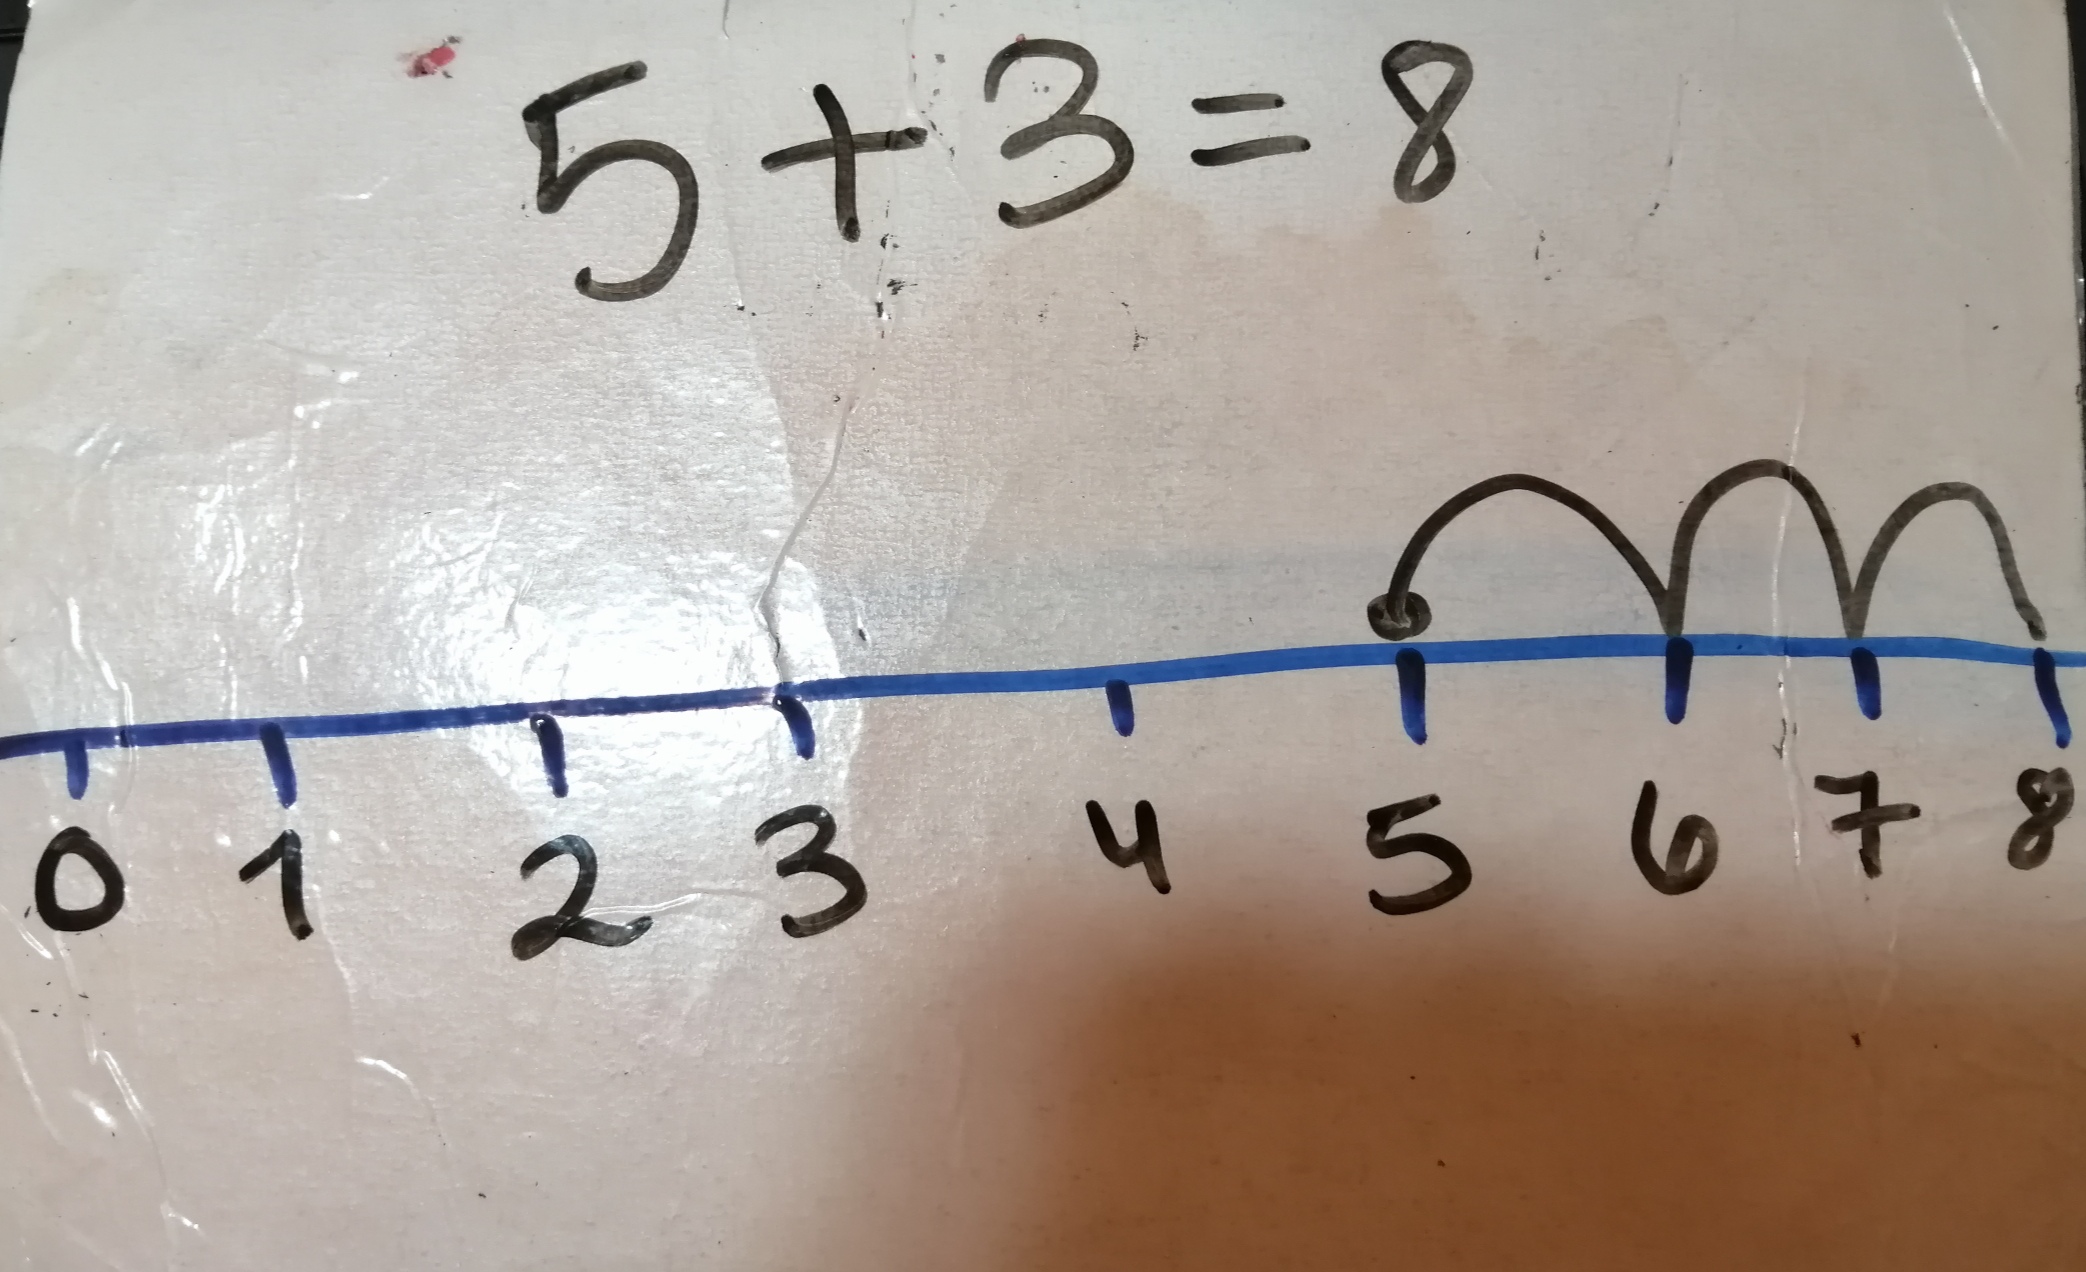 5 + 3 = 8
0 1 2 3 4 5 6 7 8